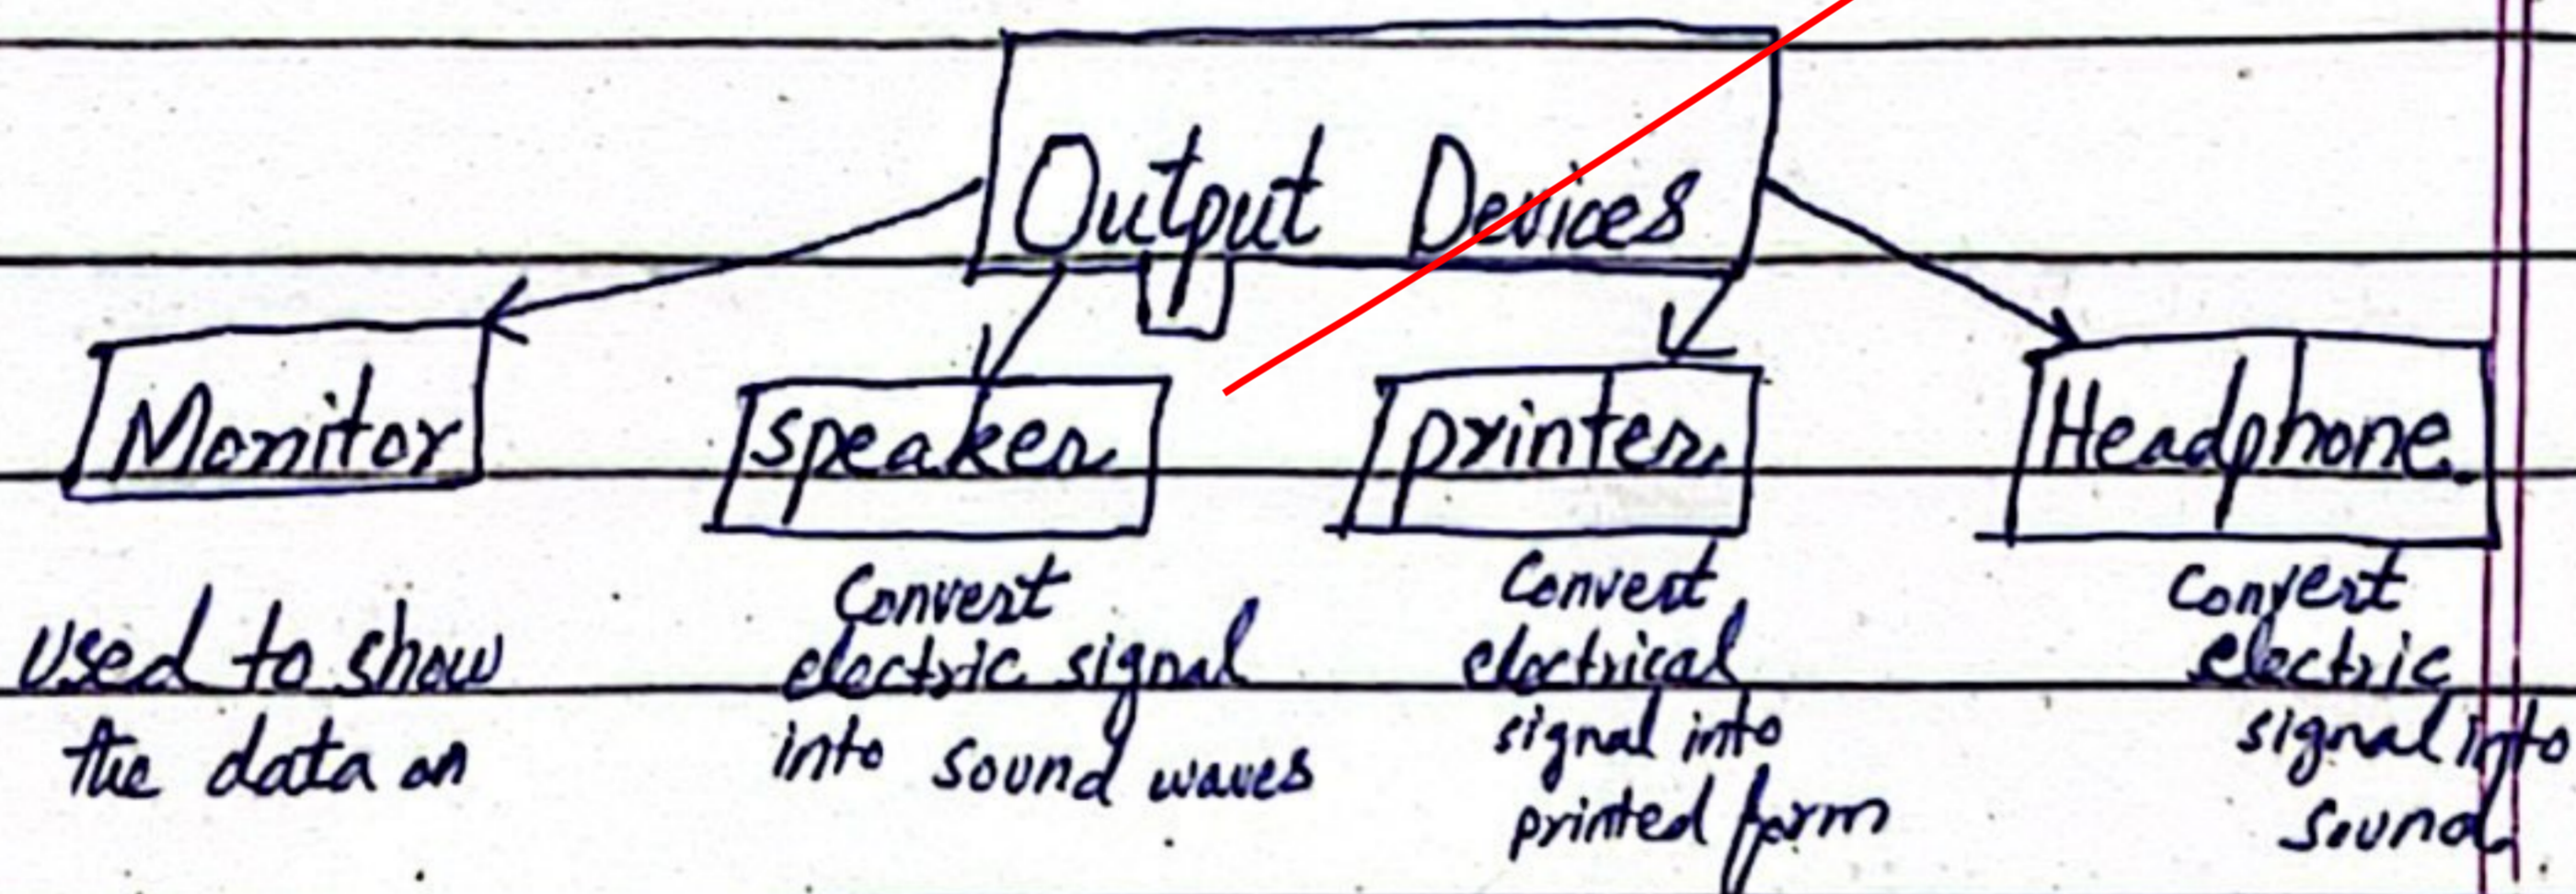 Output Devices
Monitor
speaker
printer
Headphone
used to show
the data on
Convert
electric signal
into sound waves
Convert
electrical
signal into
printed form
Convert
electric
signal into
sound